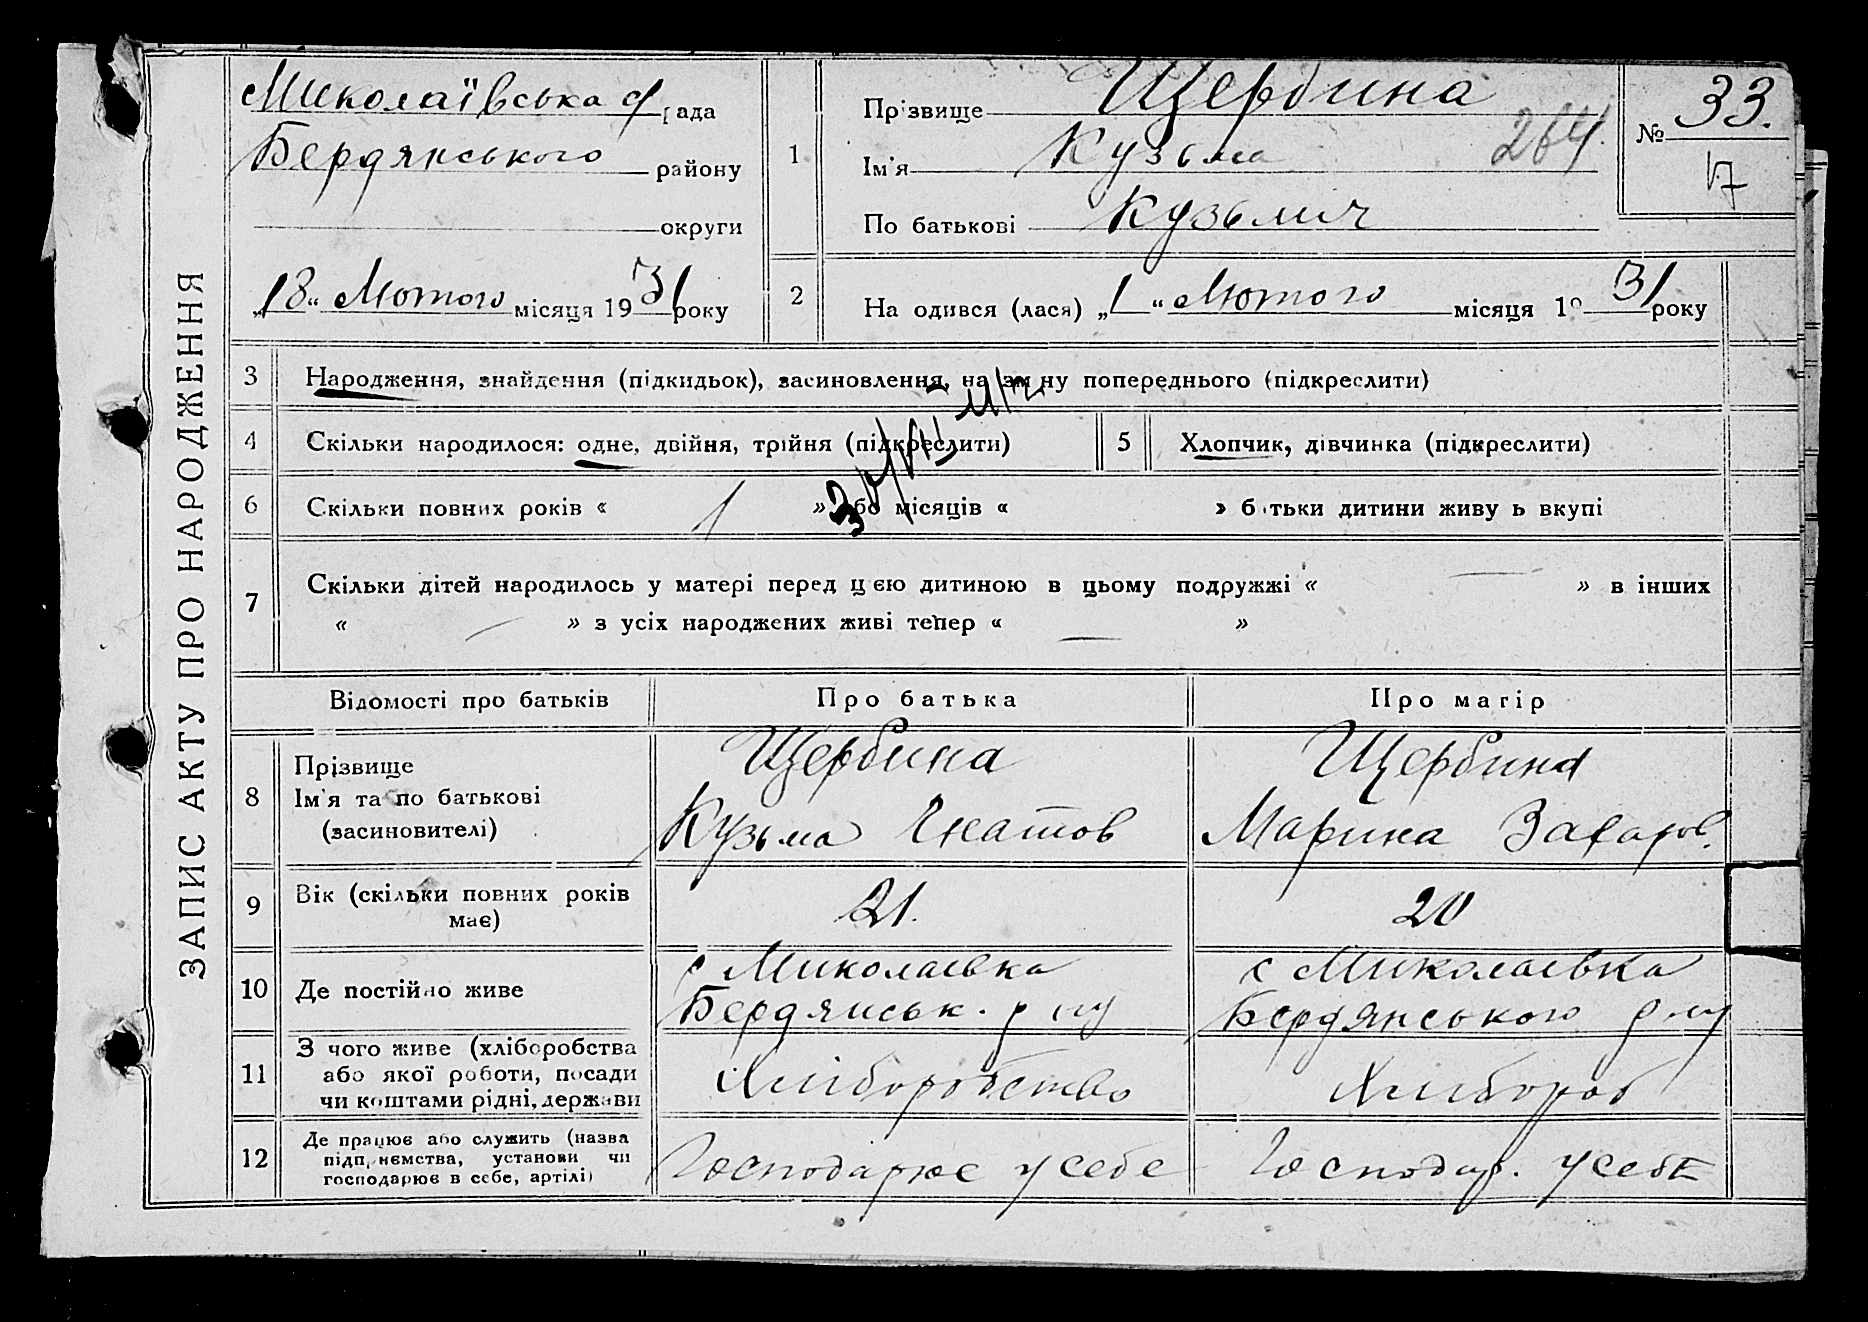 ЗАПИС АКТУ ПРО НАРОДЖЕННЯ
Миколаївська с/рада
Бердянського району
округи
„18“ Лютого місяця 1931 року
1
Прізвище Щербина
Ім'я Кузьма
По батькові Кузьмич
264
№ 33.
17
2
Народився (лася) „1“ Лютого місяця 1931 року
3 Народження, знайдення (підкидьок), засиновлення, на зміну попереднього (підкреслити)
4 Скільки народилося: одне, двійня, трійня (підкреслити)
5 Хлопчик, дівчинка (підкреслити)
6 Скільки повних років « 1 » або місяців « » батьки дитини живуть вкупі
7 Скільки дітей народилось у матері перед цією дитиною в цьому подружжі « — » в інших
« — » з усіх народжених живі тепер « — »
Відомості про батьків Про батька Про матір
8 Прізвище
Ім'я та по батькові
(засиновителі)
Щербина
Кузьма Гнатов
Щербина
Марина Захаров.
9 Вік (скільки повних років
має)
21.
20
10 Де постійно живе
с Миколаєвка
Бердянськ. р ну
с Миколаєвка
Бердянського р ну
11 З чого живе (хліборобства
або якої роботи, посади
чи коштами рідні, держави
Хліборобство
Хлібороб
12 Де працює або служить (назва
підприємства, установи чи
господарює в себе, артілі)
Господарює у себе
Господар. у себе